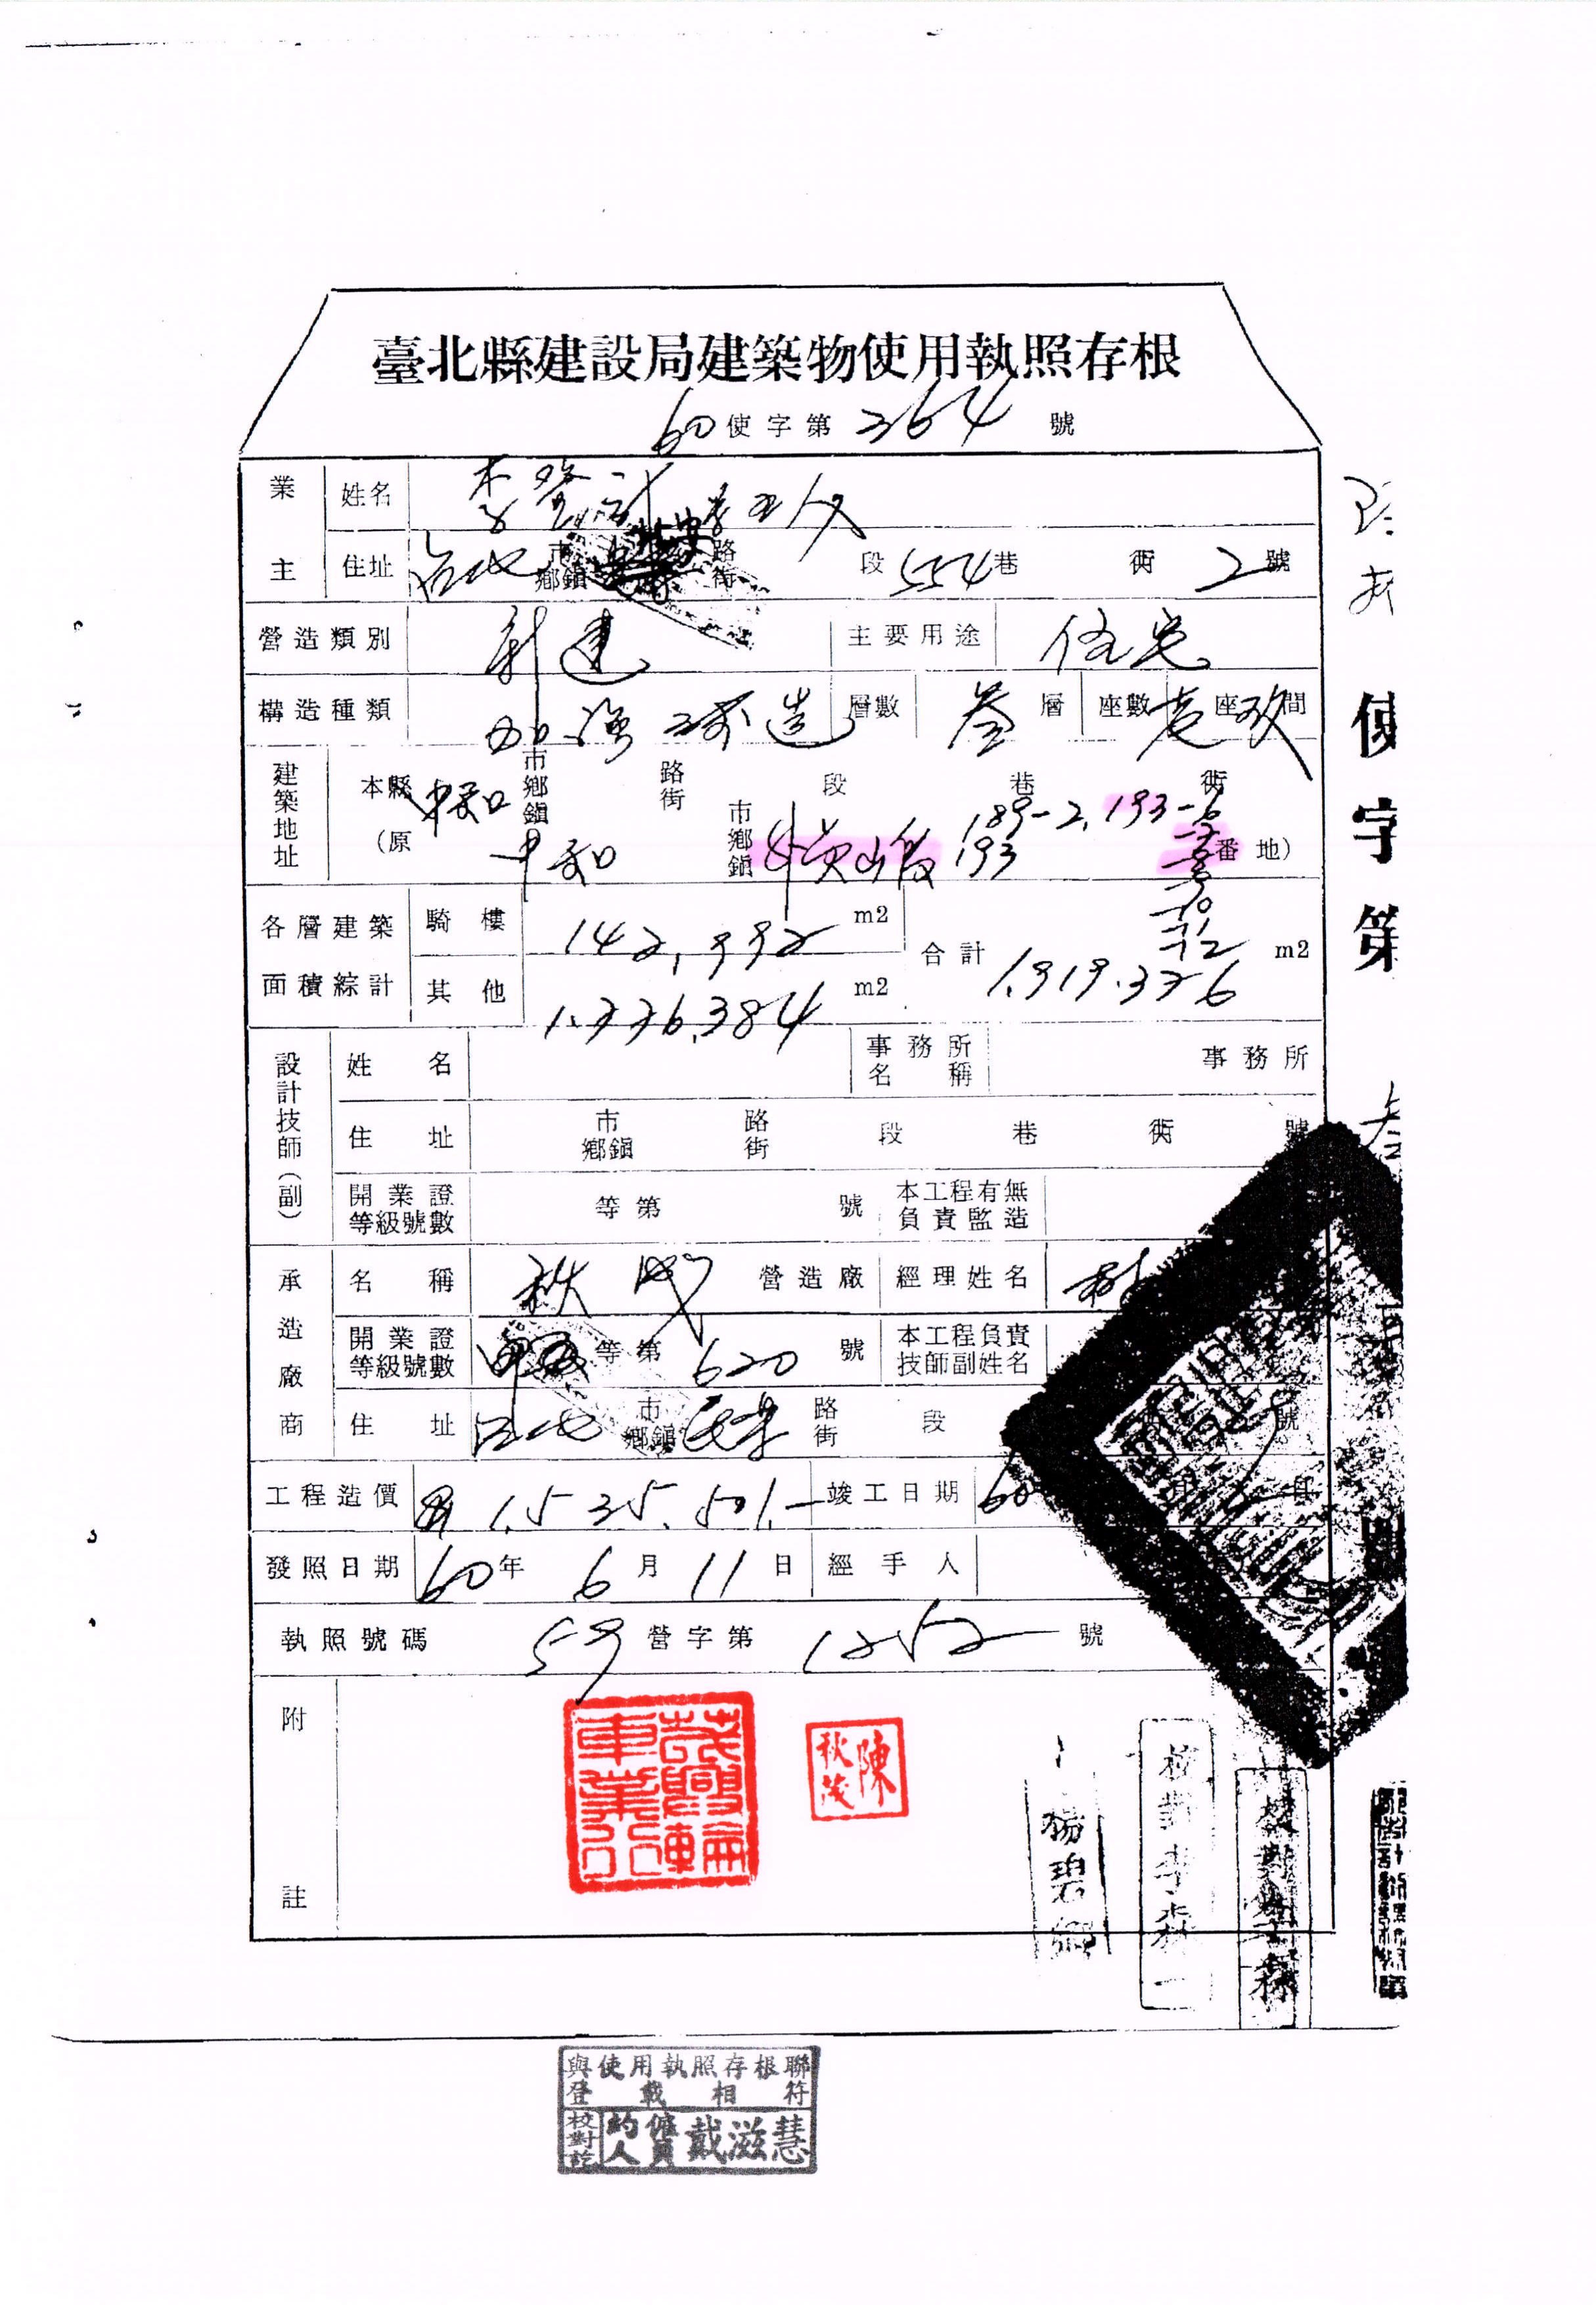 臺北縣建設局建築物使用執照存根
60使字第364號
業主 姓名 李登 等五人
住址 台北 市鄉鎮 路街 段554巷 衖2號
營造類別 新建 主要用途 住宅
構造種類 加強磚造 層數 叁層 座數 座 間
建築地址 本縣 中和 市鄉鎮 路街 段 巷 衖
(原 中和 市鄉鎮 牛埔山段 189-2, 193-6 193 番地)
-10
-12
各層建築面積綜計 騎樓 142.992 m2 合計 1,919.376 m2
其他 1,776.384 m2
設計技師(副) 姓名 事務所名稱 事務所
住址 市鄉鎮 路街 段 巷 衖 號
開業證等級號數 等第 號 本工程有無負責監造
承造廠商 名稱 秋茂 營造廠 經理姓名
開業證等級號數 等第620號 本工程負責技師副姓名
住址 台北 市鄉鎮 路街 段 號
工程造價 1,535,501.- 竣工日期 60
發照日期 60年6月11日 經手人
執照號碼 59營字第1252號
附註
茂興輪車業行
陳秋茂
楊碧
校對李森一
使字第
與使用執照存根聯
登載相符
校對訖 約僱人員 戴滋慧